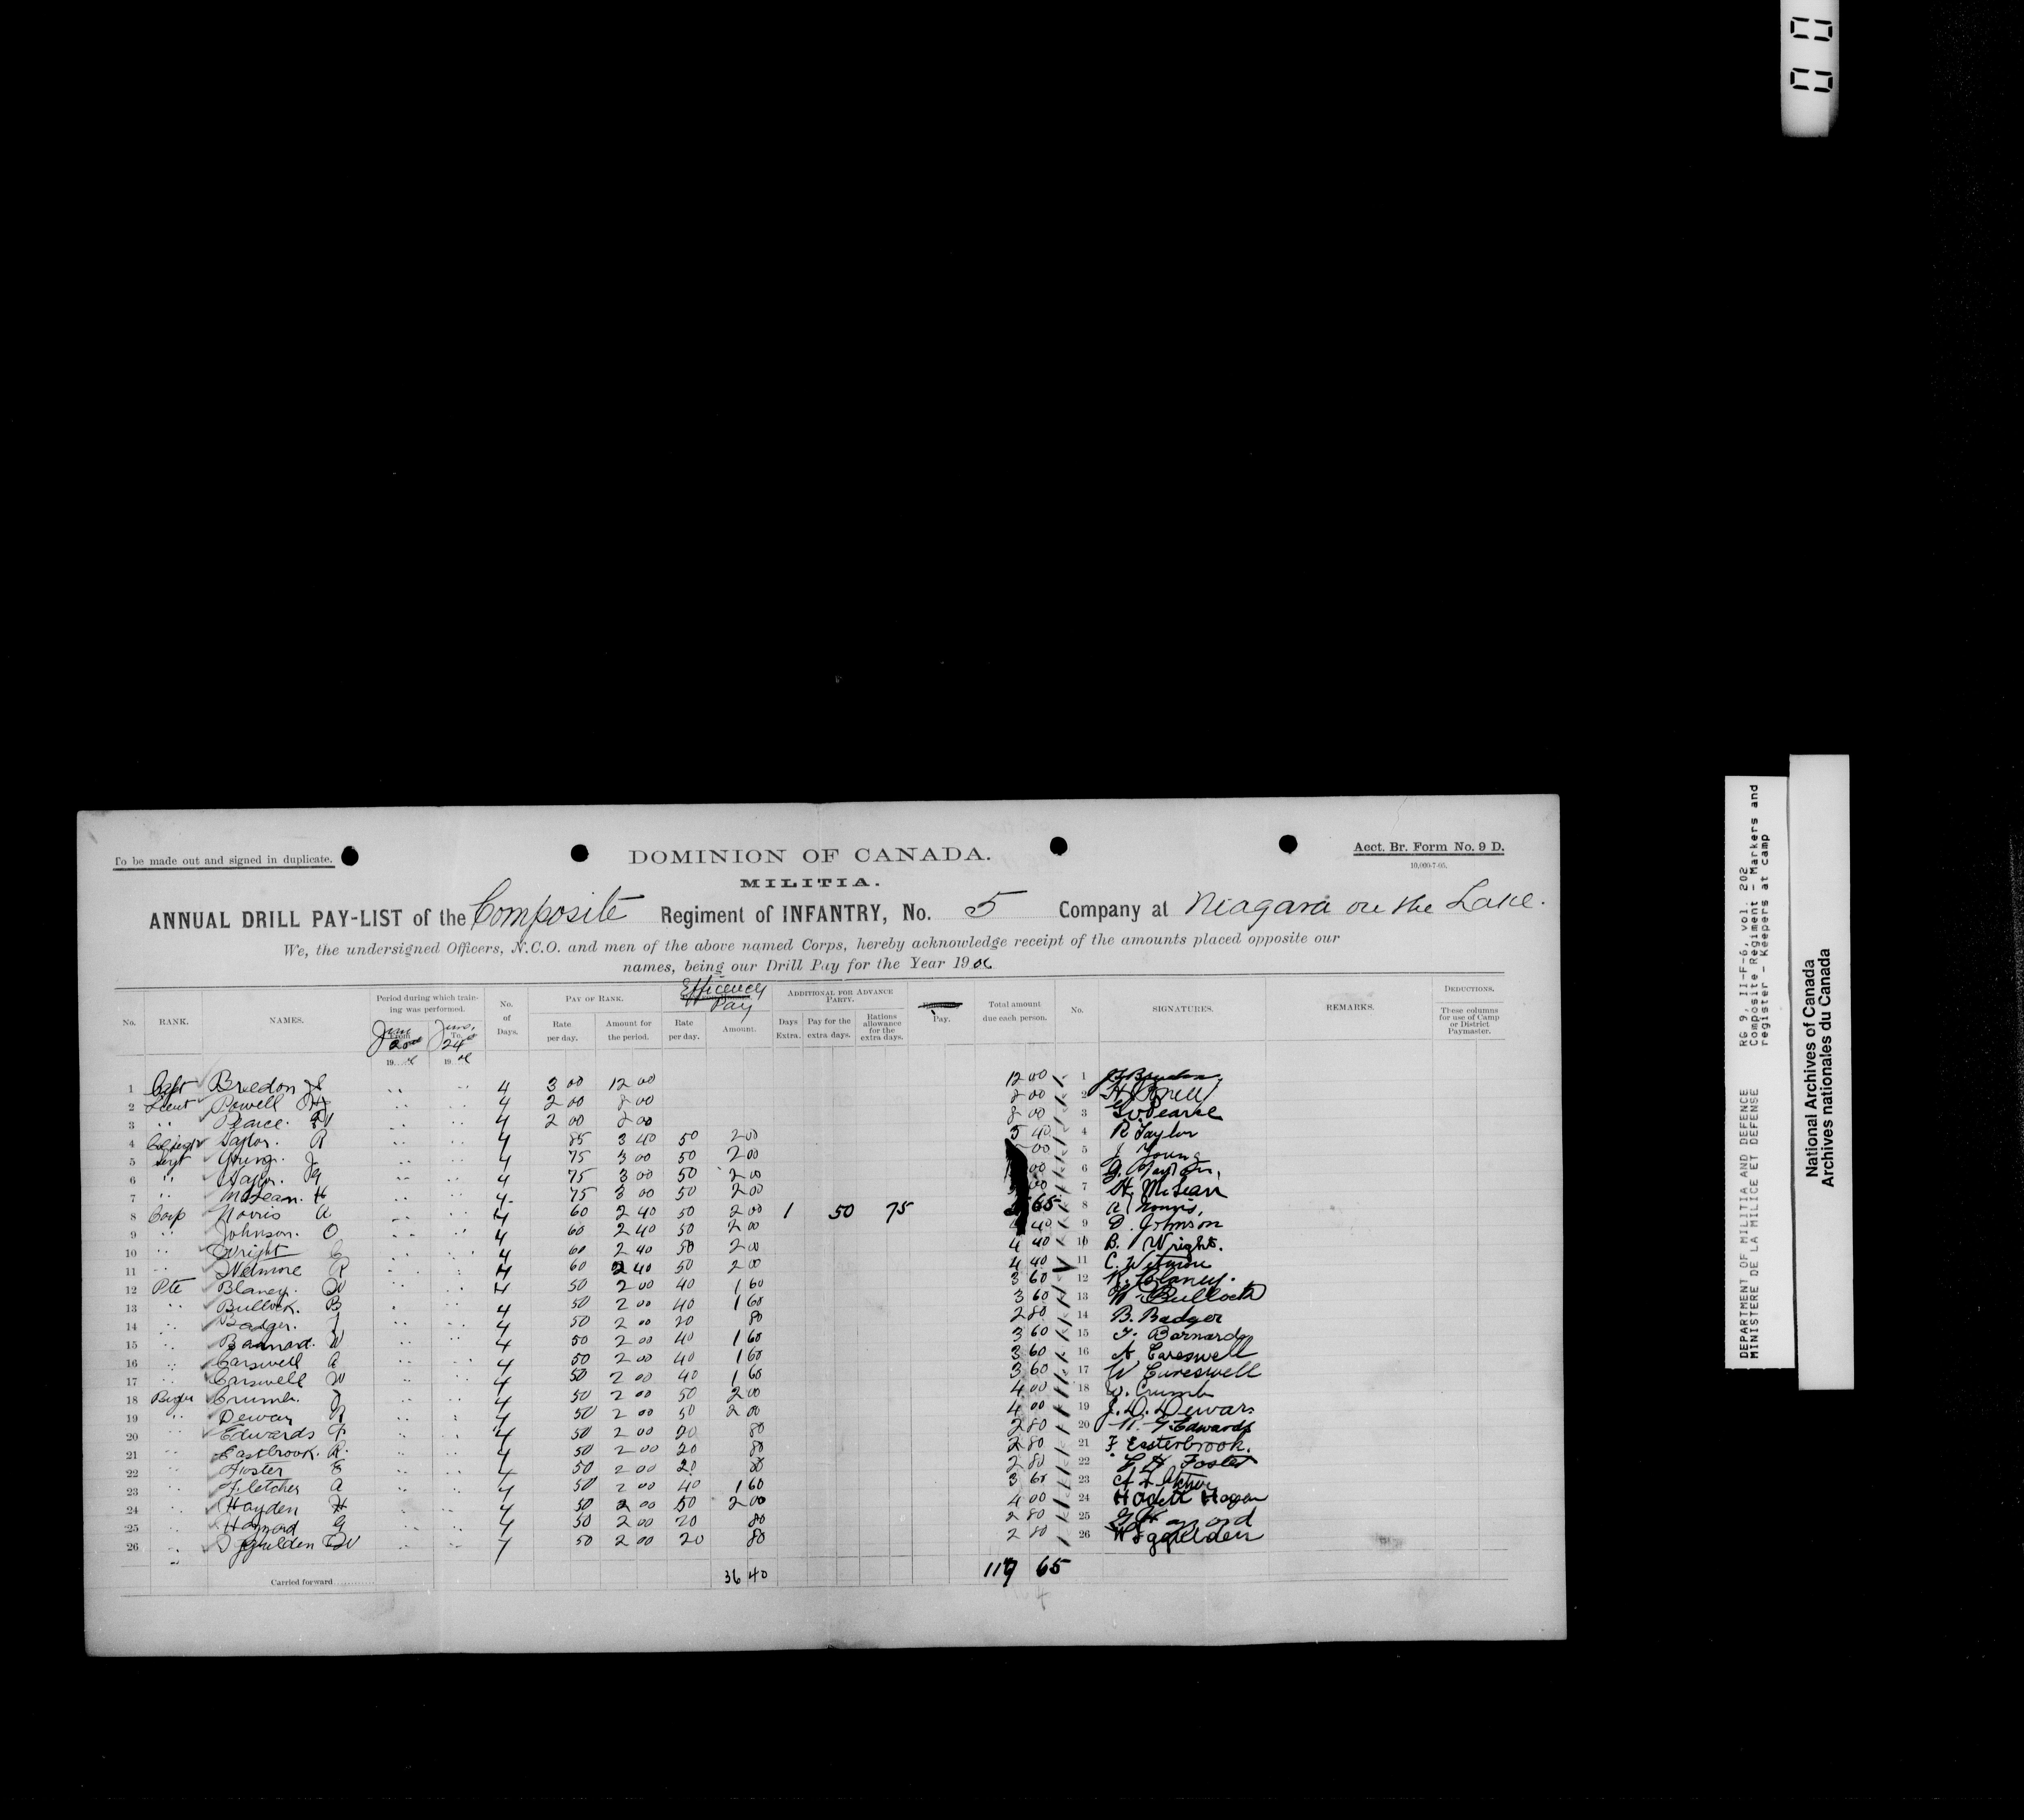 To be made out and signed in duplicate.
DOMINION OF CANADA.
Acct. Br. Form No. 9 D.
10,000-7-05.
MILITIA.
ANNUAL DRILL PAY-LIST of the Composite Regiment of INFANTRY, No. 5 Company at Niagara on the Lake.
We, the undersigned Officers, N.C.O. and men of the above named Corps, hereby acknowledge receipt of the amounts placed opposite our
names, being our Drill Pay for the Year 1906
No. RANK. NAMES. Period during which training was performed. No. of Days. PAY OF RANK. Rate per day. Amount for the period. Efficency Pay Rate per day. Amount. ADDITIONAL FOR ADVANCE PARTY. Days Extra. Pay for the extra days. Rations allowance for the extra days. Pay. Total amount due each person. No. SIGNATURES. REMARKS. DEDUCTIONS. These columns for use of Camp or District Paymaster.
1 Capt Bredon 4 3 00 12 00 12 00 1
2 Lieut Powell H 4 2 00 8 00 8 00 2
3 " Pearce 4 2 00 8 00 8 00 3 Pearce
4 Taylor. R 4 85 3 40 50 2 00 5 40 4 R Taylor
5 Sergt Young. J 4 75 3 00 50 2 00 00 5 J Young
6 " Taylor. G 4 75 3 00 50 2 00 00 6 G. Taylor.
7 " McLean. H 4 75 3 00 50 2 00 00 7 H. McLean
8 Corp Norris A 4 60 2 40 50 2 00 1 50 75 65 8 A Norris,
9 " Johnson. O 4 60 2 40 50 2 00 4 40 9 Johnson
10 " Wright 4 60 2 40 50 2 00 4 40 10 B. Wright.
11 " Wetmore R 4 60 2 40 50 2 00 4 40 11 C.
12 Pte Blaney. W 4 50 2 00 40 1 60 3 60 12 Blaney.
13 " Bullock. B 4 50 2 00 40 1 60 3 60 13 W Bullock
14 " Badger. 4 50 2 00 20 80 2 80 14 B. Badger
15 " Barnard. W 4 50 2 00 40 1 60 3 60 15 Barnard
16 " Carswell 4 50 2 00 40 1 60 3 60 16 A Careswell
17 " Carswell W 4 50 2 00 40 1 60 3 60 17 W Careswell
18 Crumb. J 4 50 2 00 50 2 00 4 00 18 Crumb
19 " Dewar 4 50 2 00 50 2 00 4 00 19 J. D. Dewars
20 " Edwards 4 50 2 00 20 80 2 80 20 Edwards
21 " Eastbrook. R. 4 50 2 00 20 80 2 80 21 F Easterbrook.
22 " Foster E 4 50 2 00 20 80 2 80 22 Foster
23 " Fletcher A 4 50 2 00 40 1 60 3 60 23
24 " Hayden H 4 50 2 00 50 2 00 4 00 24
25 " G 4 50 2 00 20 80 2 80 25
26 " 4 50 2 00 20 80 2 80 26
Carried forward 36 40 65
DEPARTMENT OF MILITIA AND DEFENCE
MINISTERE DE LA MILICE ET DEFENSE
RG 9, II-F-6, vol. 202
Composite Regiment - Markers and
register - Keepers at camp
National Archives of Canada
Archives nationales du Canada